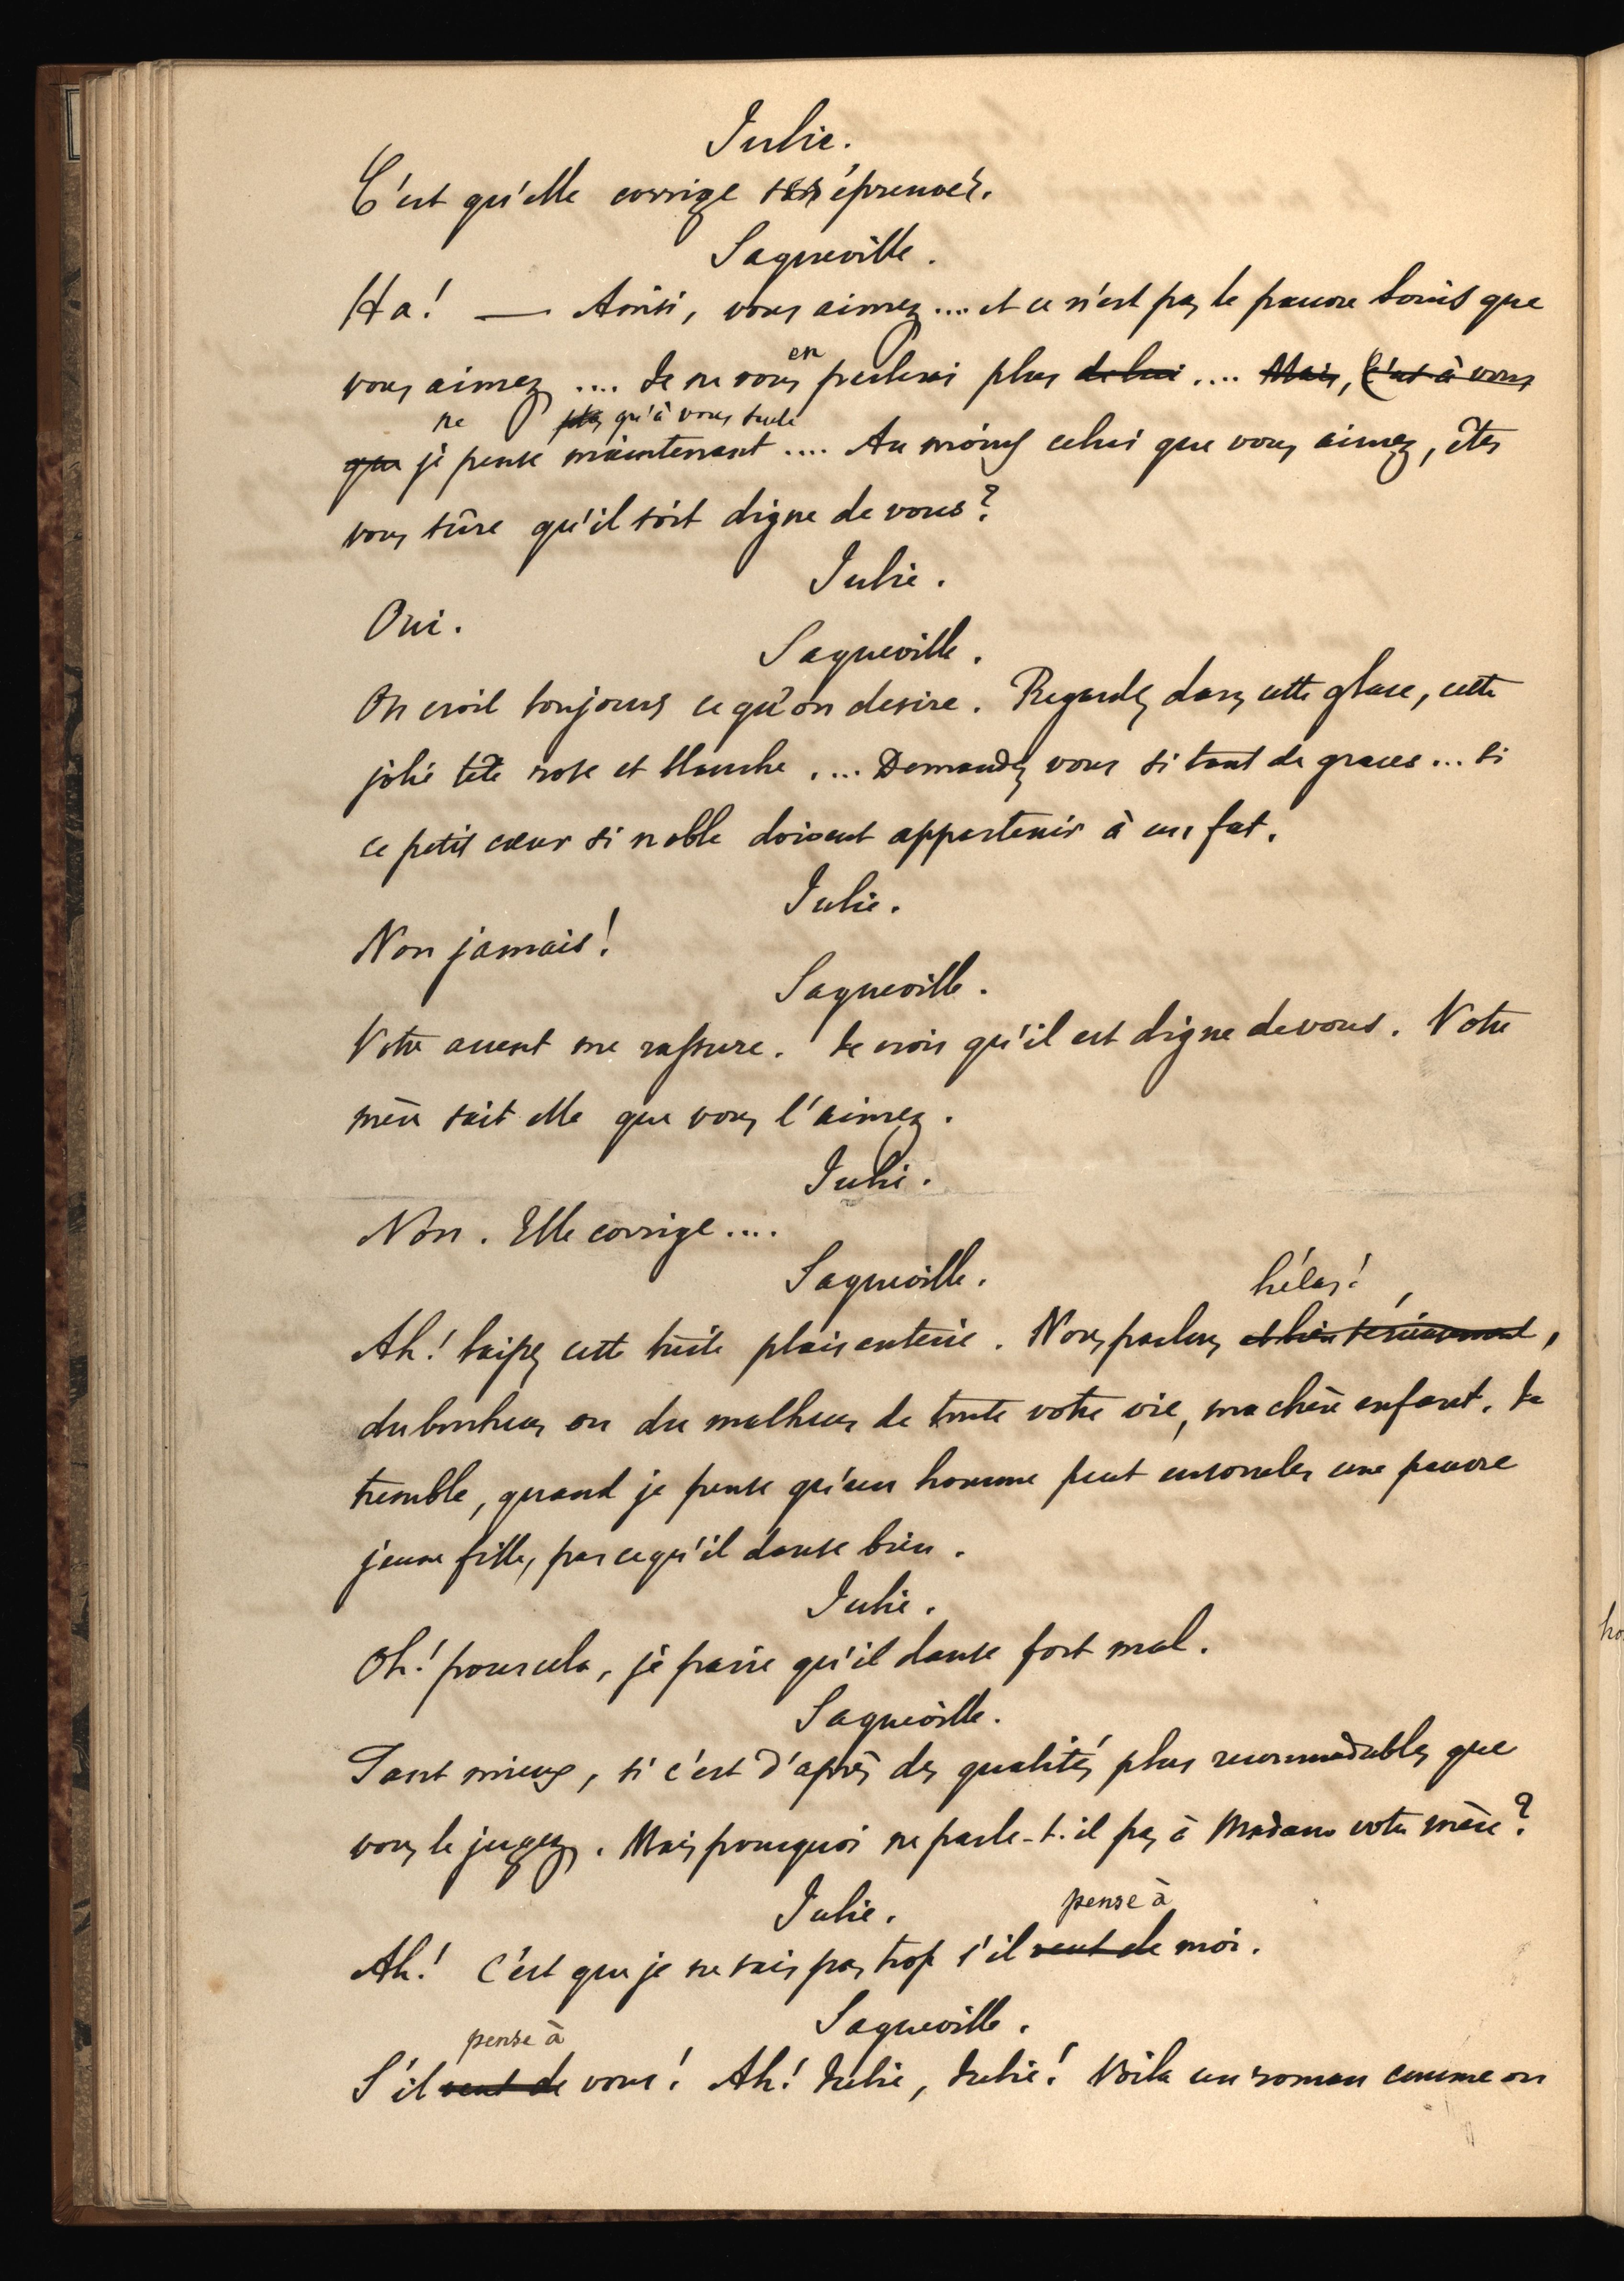 Julie.
C'est qu'elle corrige ses épreuves.
Saqueville.
Ha! — Ainsi, vous aimez .... et ce n'est pas le pauvre Louis que
en
vous aimez .... Je ne vous parlerai plus de lui .... Mais, C'est à vous
ne pas qu'à vous seule
que je pense maintenant .... Au moins celui que vous aimez, êtes
vous sûre qu'il soit digne de vous?
Julie.
Oui.
Saqueville.
On croit toujours ce qu'on desire. Regardez dans cette glace, cette
jolie tête rose et blanche .... Demandez vous si tant de graces ... si
ce petit cœur si noble doivent appartenir à un fat.
Julie.
Non jamais!
Saqueville.
Votre accent me rassure. Je crois qu'il est digne de vous. Votre
mère sait elle que vous l'aimez.
Julie.
Non. Elle corrige ....
Saqueville.
hélas!
Ah! laissez cette triste plaisanterie. Nous parlons et bien sérieusement,
du bonheur ou du malheur de toute votre vie, ma chère enfant. Je
tremble, quand je pense qu'un homme peut ensorceler une pauvre
jeune fille, parcequ'il danse bien.
Julie.
Oh! pour cela, je parie qu'il danse fort mal.
Saqueville.
Tant mieux, si c'est d'après des qualités plus recommandables que
vous le jugez. Mais pourquoi ne parle-t-il pas à Madame votre mère?
Julie.
pense à
Ah! C'est que je ne sais pas trop s'il veut de moi.
Saqueville.
pense à
S'il veut de vous! Ah! Julie, Julie! Voila un roman comme on